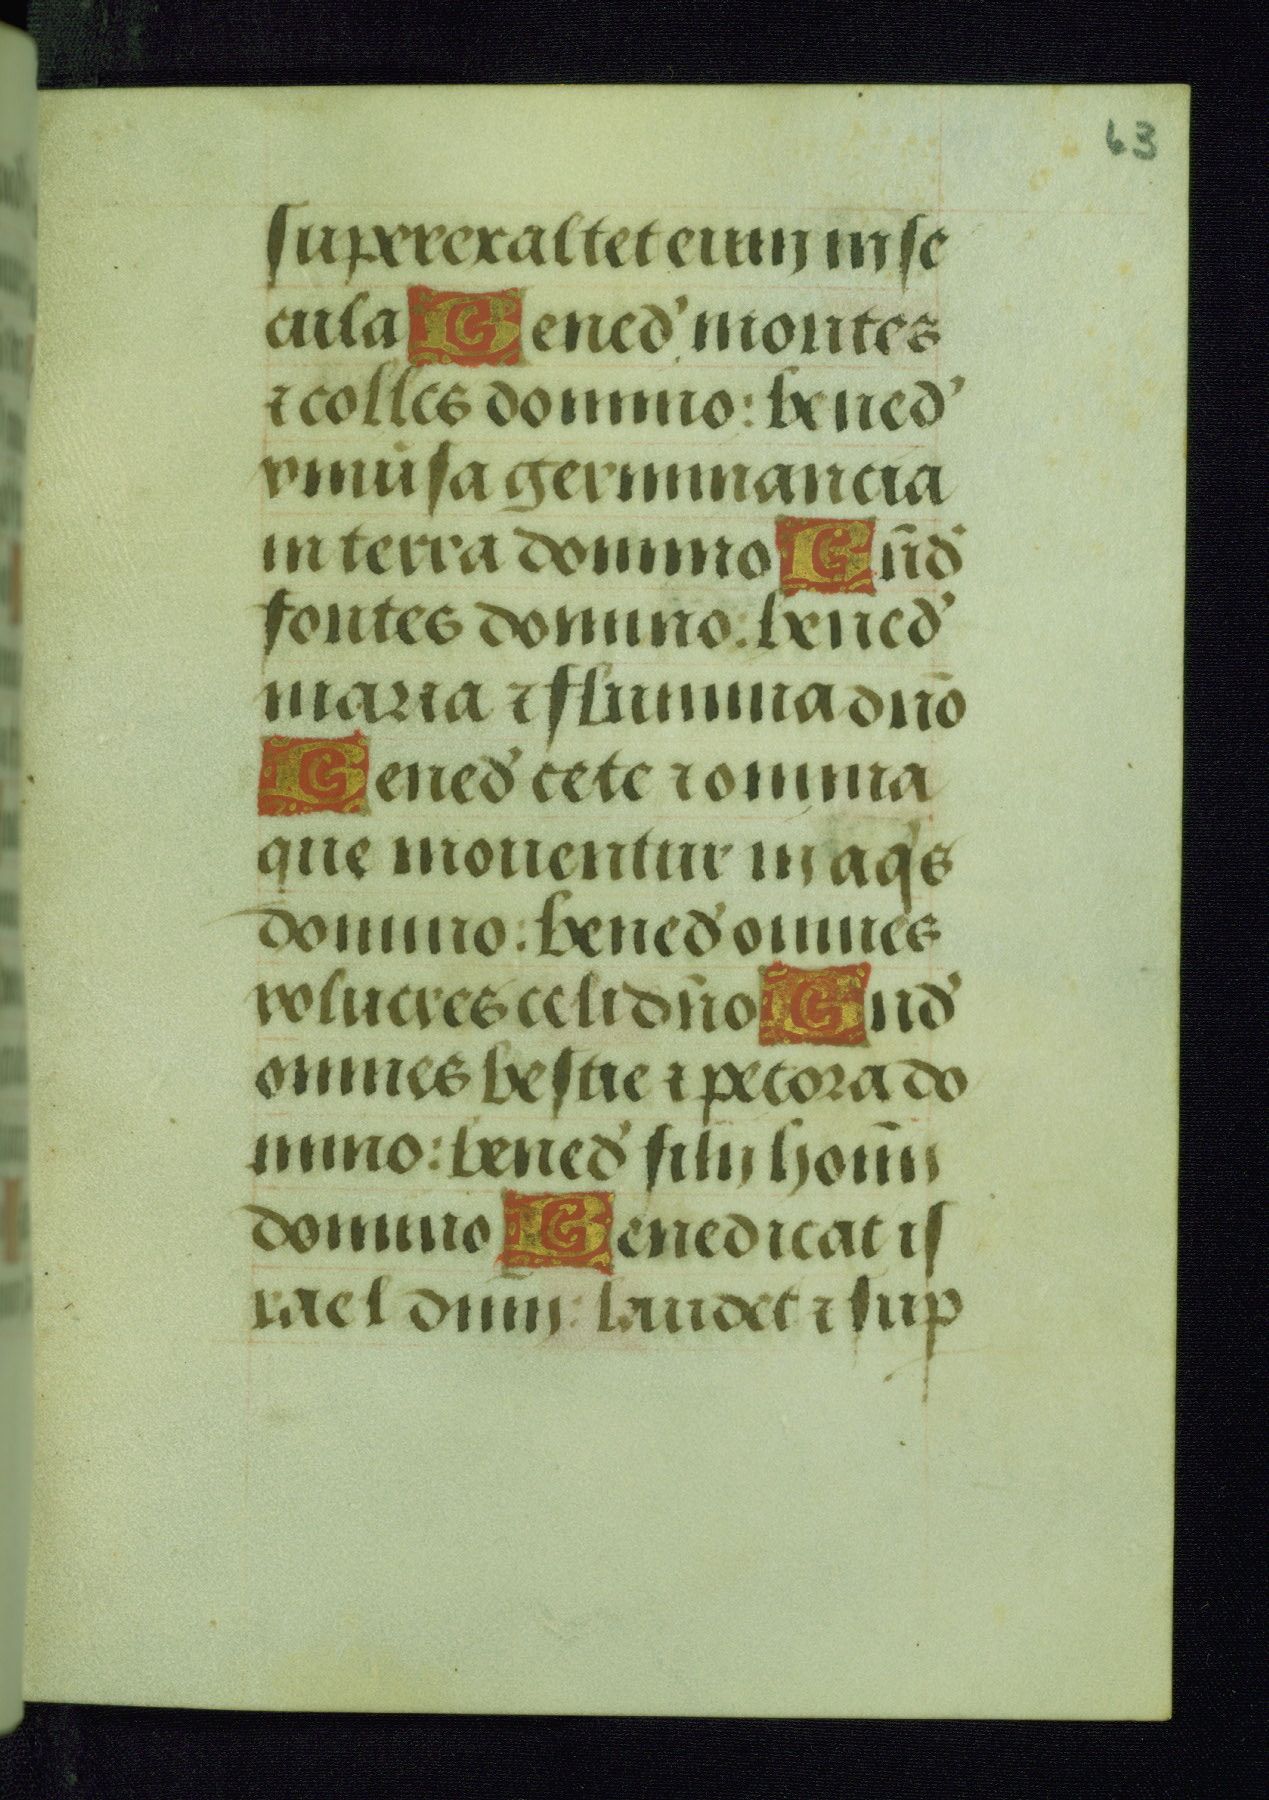 63
superexaltet eum in se
cula Bened' montes
⁊ colles domino: bened'
vniu̾sa germinancia
in terra domino Bn̄d'
fontes domino: bened'
maria ⁊ flumina dn̄o
Bened' cete ⁊ omnia
que mouentur in aq's
domino: bened' omnes
volucres celi dn̄o Bnd'
omnes bestie ⁊ pecora do
mino: bened' filij homī̄
domino Benedicat is
rael dnm̄: laudet ⁊ sup